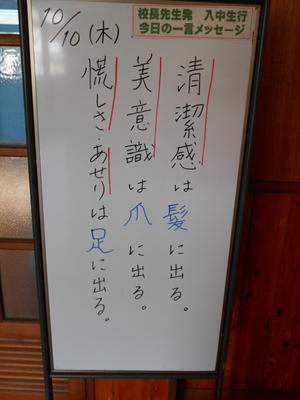 校長先生発　入中生行
今日の一言メッセージ
10/10(木)
清潔感は髪に出る。
美意識は爪に出る。
慌しさ・あせりは足に出る。